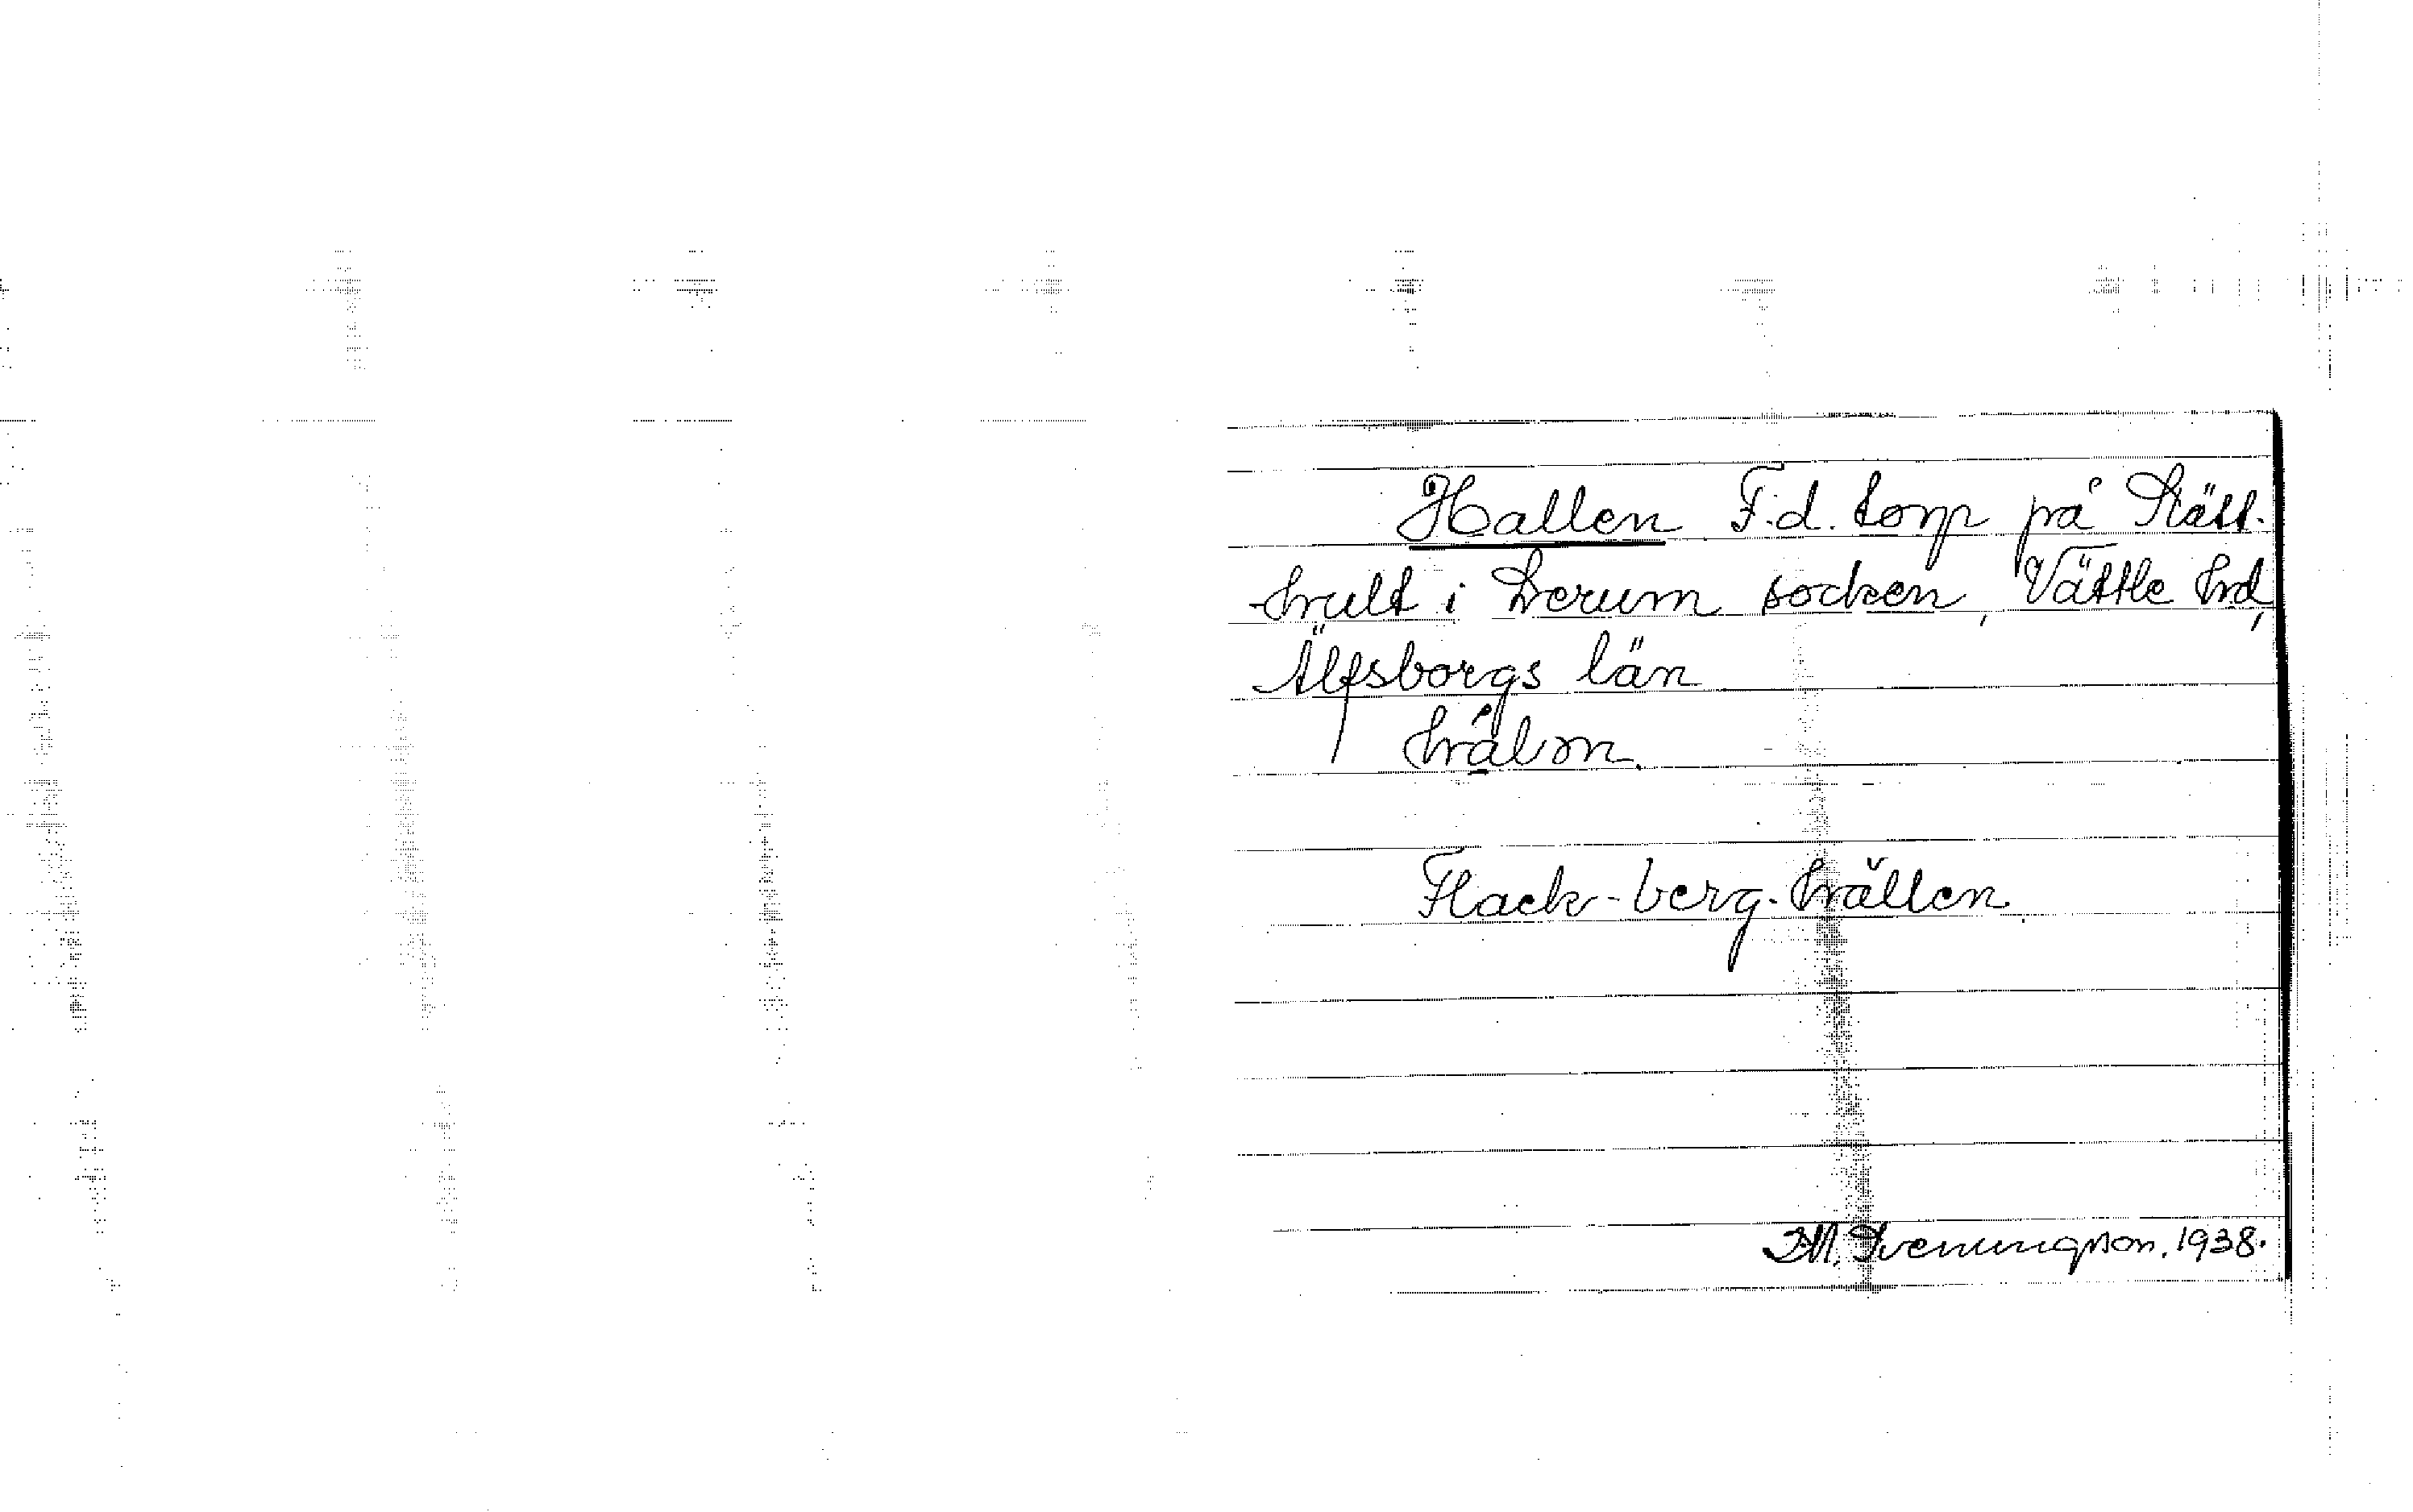 Hallen F.d. torp på Slätt-
hult i Lerum socken, Vättle hd,
Älfsborgs län
Flack-berg-hällen
J.M. Svenungson. 1938.